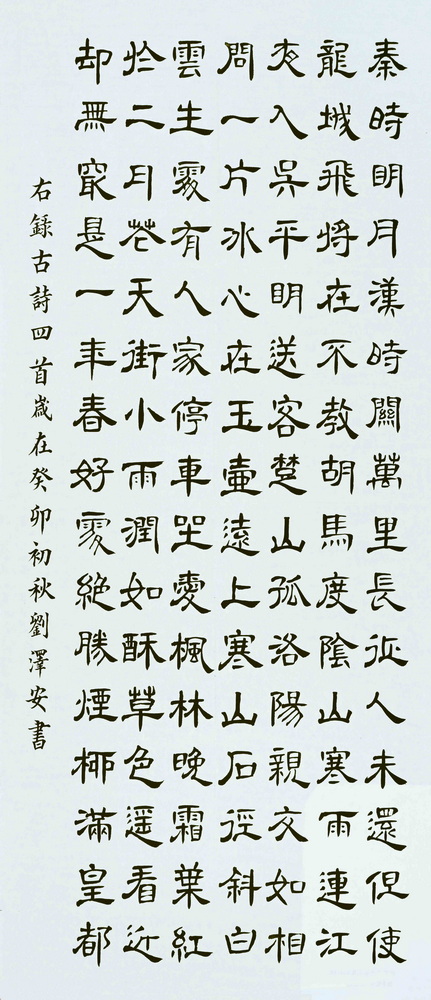 秦時明月漢時關萬里長征人未還但使
龍城飛將在不教胡馬度陰山寒雨連江
夜入吳平明送客楚山孤洛陽親友如相
問一片冰心在玉壺遠上寒山石徑斜白
雲生處有人家停車坐愛楓林晚霜葉紅
於二月花天街小雨潤如酥草色遥看近
却無最是一年春好處絕勝煙柳滿皇都
右錄古詩四首歲在癸卯初秋劉澤安書